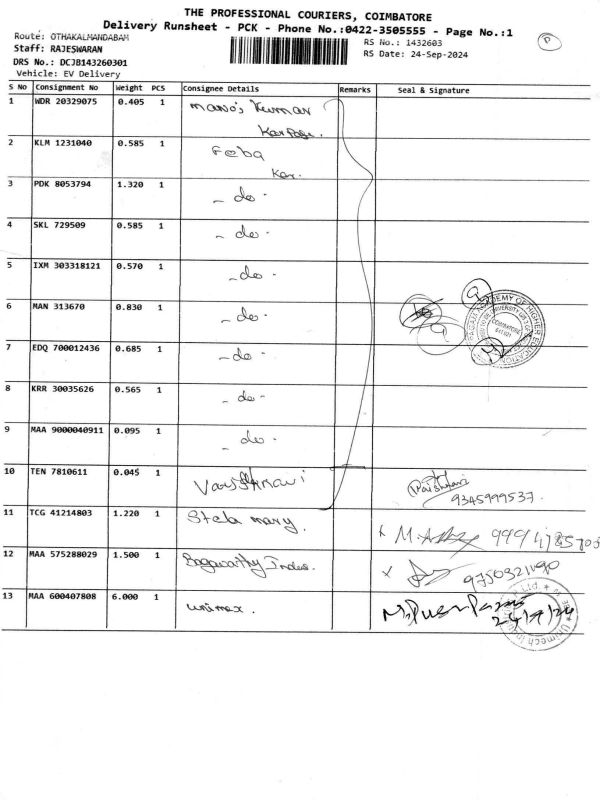 THE PROFESSIONAL COURIERS, COIMBATORE
Delivery Runsheet - PCK - Phone No.:0422-3505555 - Page No.:1
Route: OTHAKALMANDABAM
RS No.: 1432603
P
Staff: RAJESWARAN
RS Date: 24-Sep-2024
DRS No.: DCJB143260301
Vehicle: EV Delivery
S No Consignment No Weight PCS Consignee Details Remarks Seal & Signature
1 WDR 20329075 0.405 1 Kumar
2 KLM 1231040 0.585 1 Feba
3 PDK 8053794 1.320 1 - do -
4 SKL 729509 0.585 1 - do -
5 IXM 303318121 0.570 1 - do
6 MAN 313670 0.830 1 - do -
7 EDQ 700012436 0.685 1 - do -
8 KRR 30035626 0.565 1 - do -
9 MAA 9000040911 0.095 1 - do -
10 TEN 7810611 0.045 1 9345999537
11 TCG 41214803 1.220 1 Stela mary.
12 MAA 575288029 1.500 1
13 MAA 600407808 6.000 1 unimex.
ACADEMY OF HIGHER EDUCATION
COIMBATORE
641021